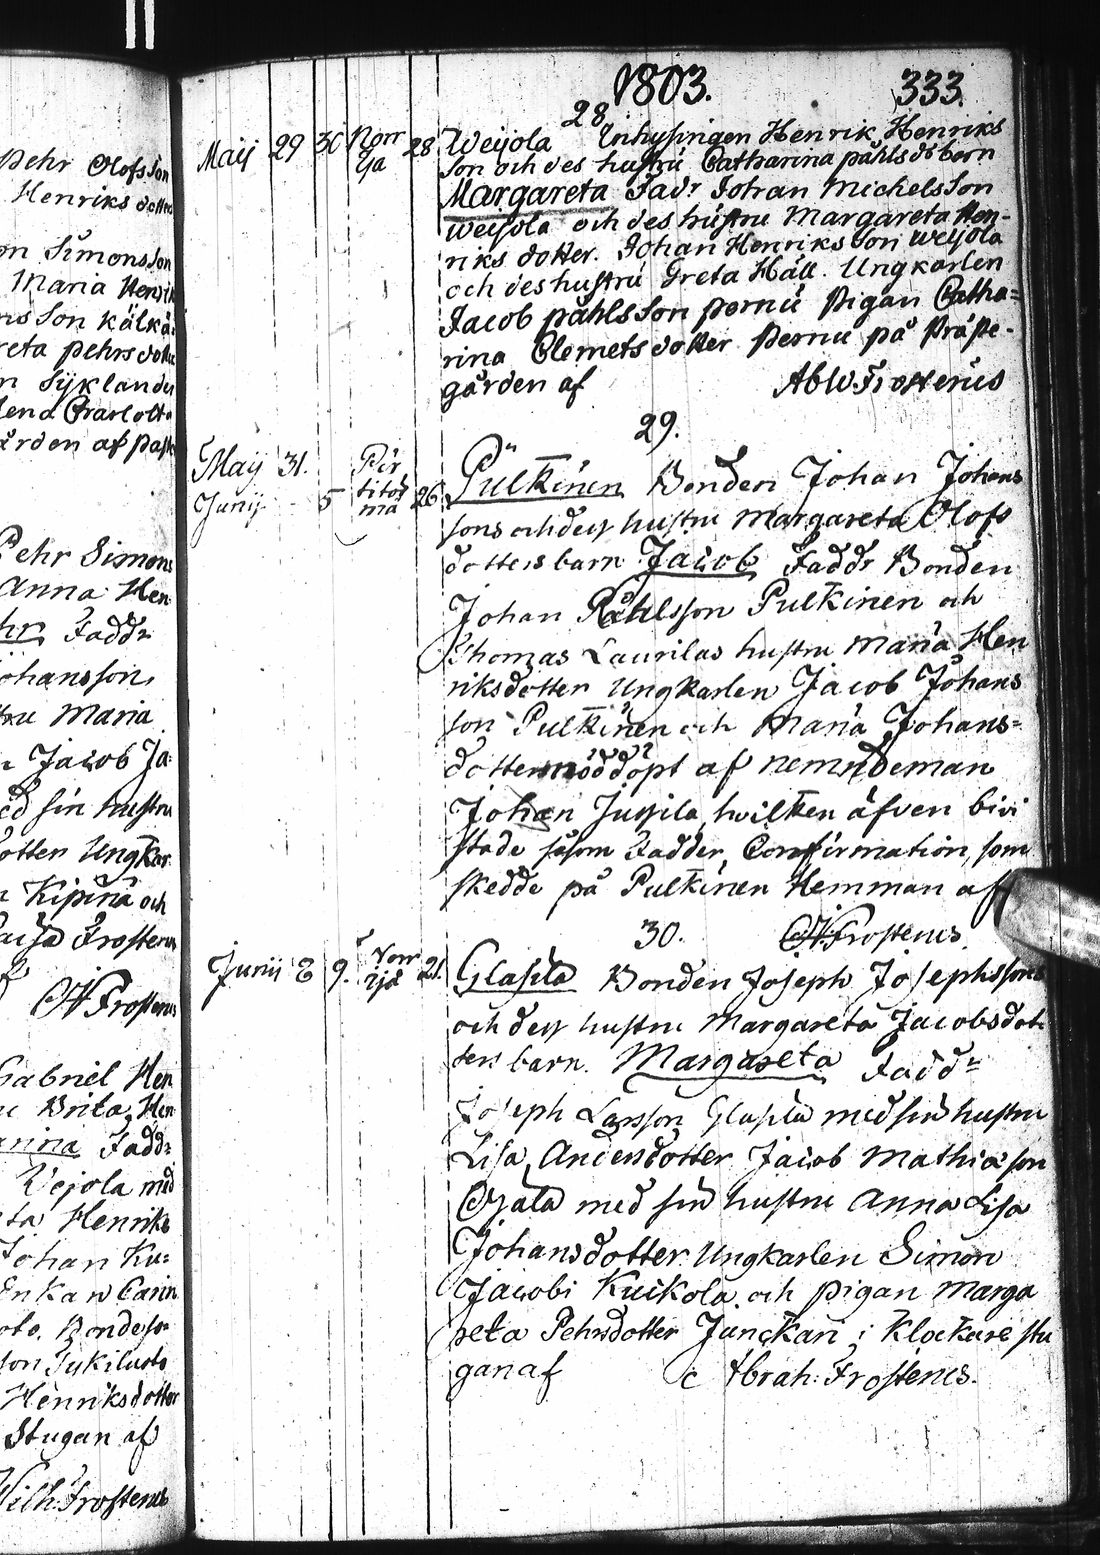 Pehr Olofsson
Henriks dotter
Simonsson
Maria Henrik
son kälkä
reta Pehrsdotte
Syklander
lena Charlotta
gården af Past
Pehr Simons
Anna Hen
Faddr
Johansson
Maria
Jacob Ja-
ed sin hustru
otter Ungkar
Kipinä och
Frosterus
W Frosterus
Gabriel Hen
Brita Hen
Fadd:
Wejola med
ta Henriks
Johan Ku-
Enkan Carin
Henriksdotter
Stugan af
Wilh: Frosterus
1803. 333.
28
Maij 29 30 Norr
ljä 28 Weijola Inhysingen Henrik Henriks
son och des hustru Catharina påhls ds barn
Margareta Fadr Johan Michelsson
weijola och des hustru Margareta Hen-
riks dotter. Johan Henriksson weijola
och des hustru Greta Häll. Ungkarlen
Jacob påhlsson pernu Pigan Catha=
rina Clemets dotter Pernu på Präste-
gården af Ab W Frosterus
29.
Maij 31.
Junij 5 26 Pulkinen Bonden Johan Johans
sons och dess hustru Margareta Olofs
dotters barn Jacob Faddr Bonden
Johan Påhlsson Pulkinen och
Thomas Laurilas hustru Maria Hen
riksdotter Ungkarlen Jacob Johans
son Pulkinen och Maria Johans=
dotter nöddöpt af nemndeman
Johan Jussila, hvilken äfven bivi
stade såsom Fadder, Confirmation, som
skedde på Pulkinen Hemman af
W. Frosterus.
30.
Junij 8 9. Norr
ljä 21. Glasila Bonden Joseph Josephssons
och dess hustru Margareta Jacobsdot
ters barn. Margareta Fadd=
Joseph Larsson Glasila med sin hustru
Lisa Andersdotter Jacob Mathiæson
Ojala med sin hustru Anna Lisa
Johansdotter Ungkarlen Simon
Jacobi Kuikola och pigan Marga
reta Pehrsdotter Junckari i Klockare stu
gan af Abrah: Frosterus.